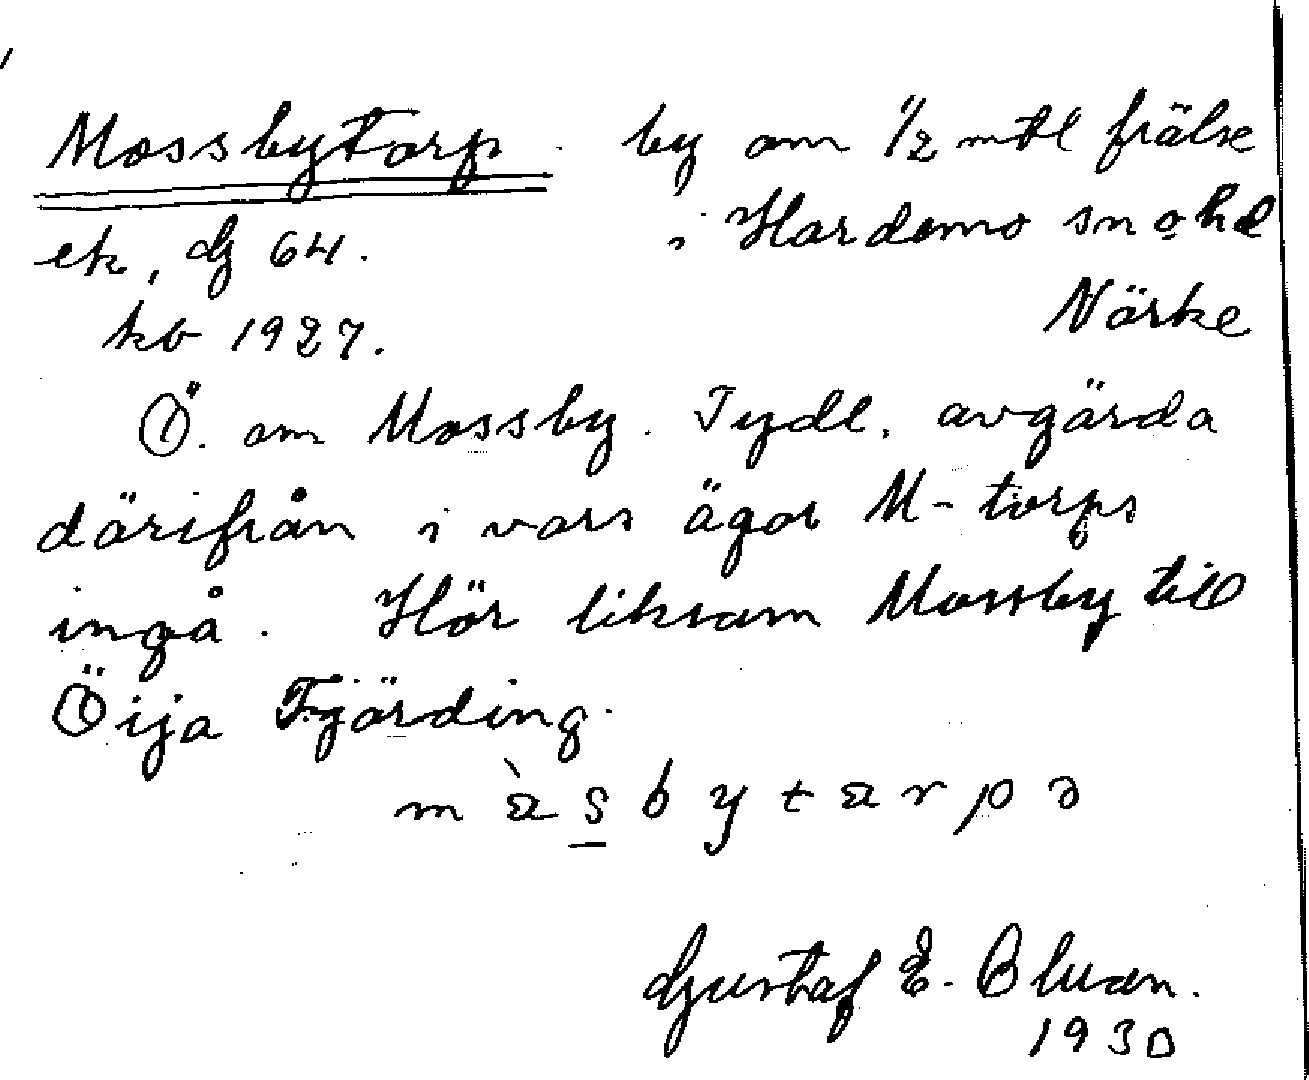 Mossbytorp. by om 1/2 mtl frälse
ek, dg 64. i Hardemo sn o hd
kb 1927. Närke
Ö. om Mossby. Tydl. avgärda
därifrån i vars ägor M-torps
ingå. Hör liksom Mossby till
Öija Fjärding.
Gustaf E. Bluan.
1930